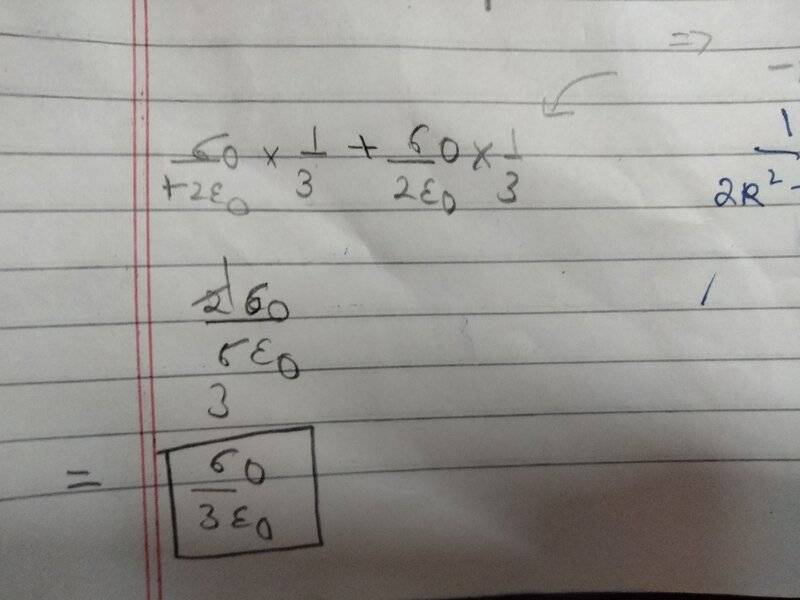 =>
σ0/+2ε0 × 1/3 + σ0/2ε0 × 1/3
1/2R² -
2 1 σ0
6ε0
3
= σ0/3ε0